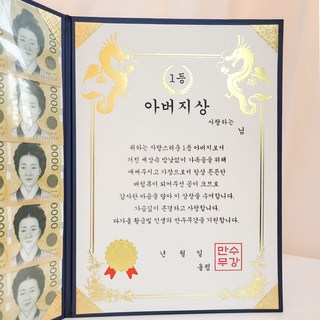 1등
아버지상
사랑하는
님
위하는 자랑스러운 1등 아버지로서
거친 세상속 밤낮없이 가족들을 위해
애써주시고 가장으로서 항상 든든한
버팀목이 되어주신 공이 크므로
감사한 마음을 담아 이 상장을 수여합니다.
가슴깊이 존경하고 사랑합니다.
다가올 황금빛 인생의 만수무강을 기원합니다.
년 월 일
올림
만수
무강